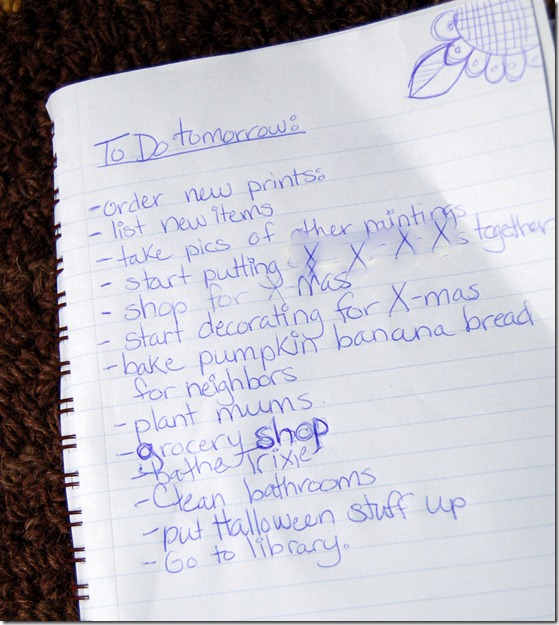 To Do tomorrow:
-order new prints:
- list new items
- take pics of other paintings
- start putting X - X - X - X's together
- shop for X-mas
- start decorating for X-mas
-bake pumpkin banana bread
for neighbors
-plant mums.
-grocery shop
-Bathe Trixie
-Clean bathrooms
-put Halloween stuff up
- Go to library.